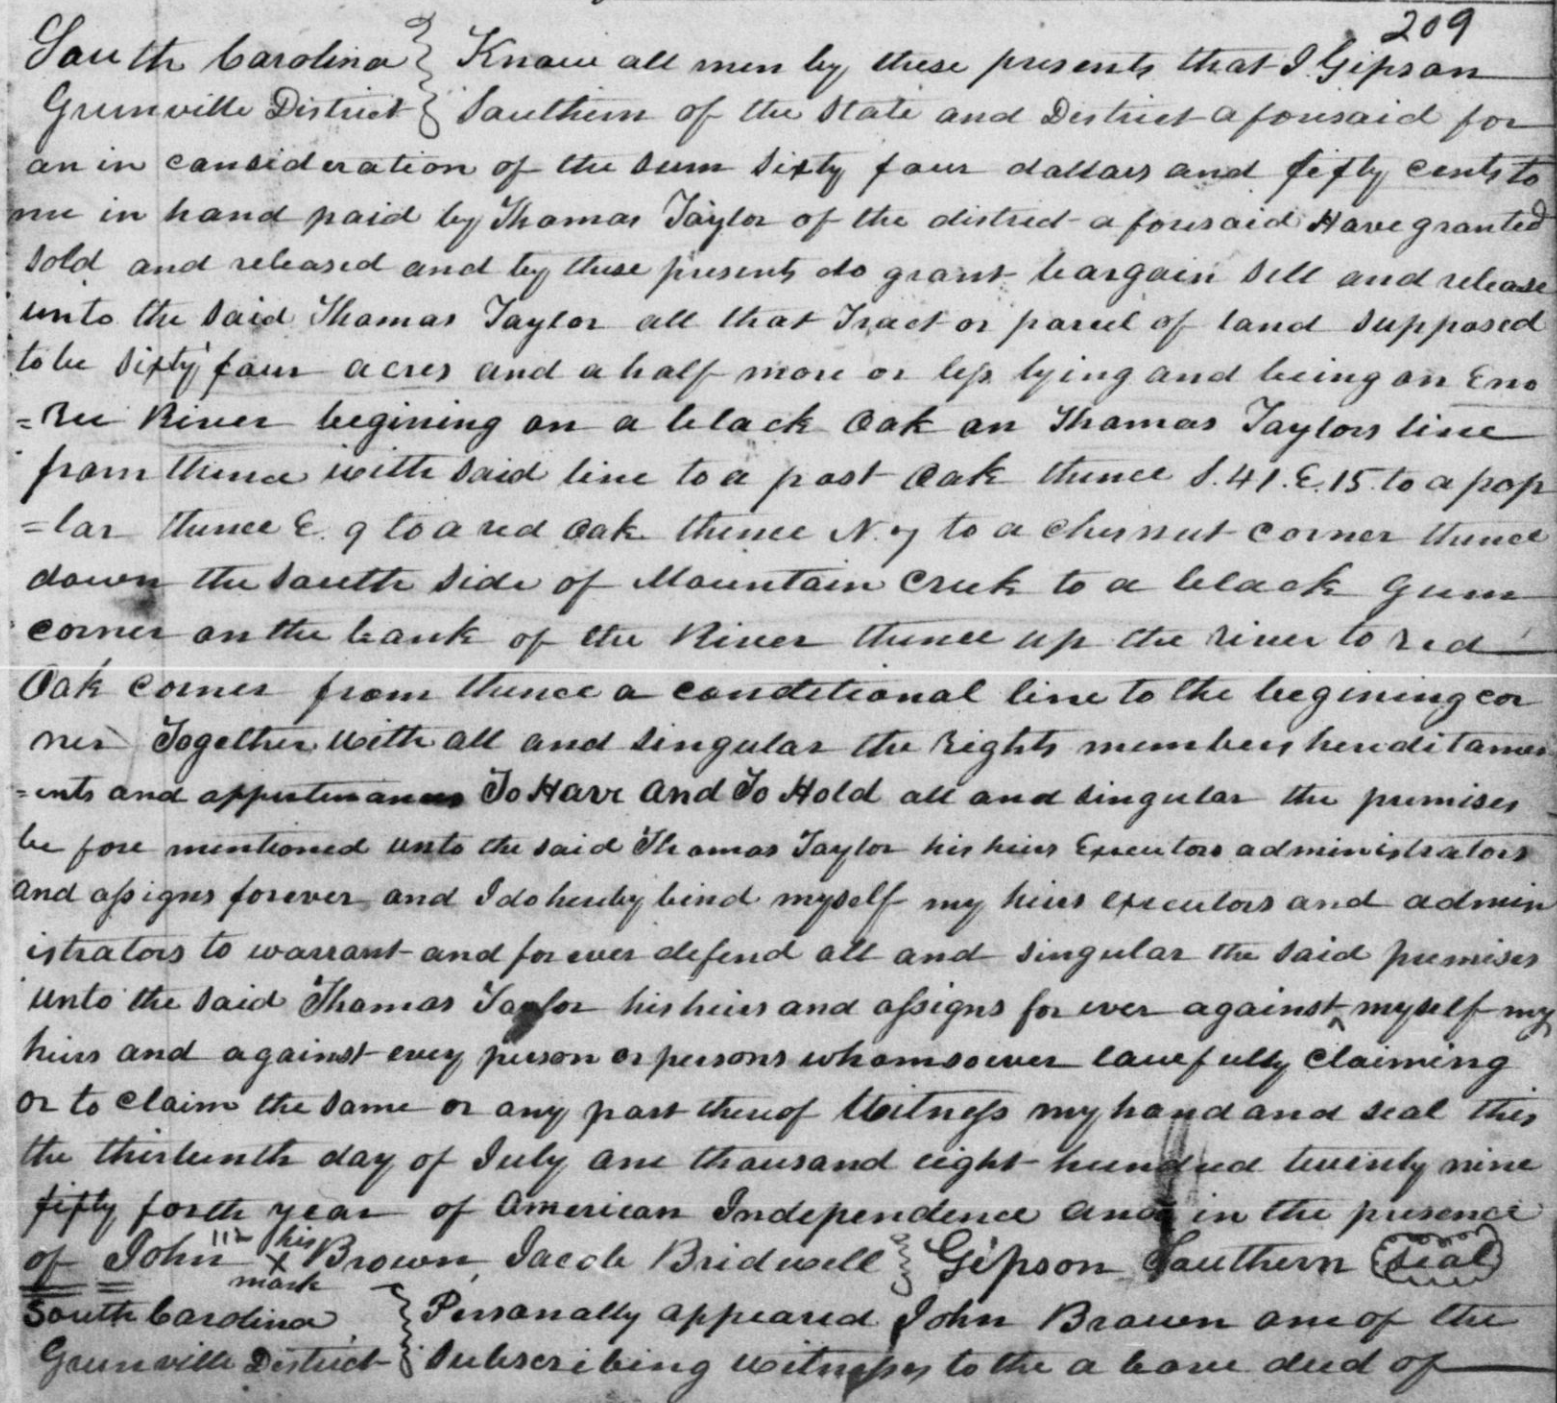 209
South Carolina } Know all men by these presents that I Gipson
Greenville District } Southern of the State and District aforesaid for
an in consideration of the sum sixty four dollars and fifty cents to
me in hand paid by Thomas Taylor of the district a foresaid Have granted
sold and released and by these presents do grant bargain sell and release
unto the said Thomas Taylor all that Tract or parcel of land supposed
to be sixty four acres and a half more or less lying and being on Eno
=ree River begining on a black Oak on Thomas Taylors line
from thence with said line to a post Oak thence S. 41. E. 15. to a pop
=lar thence E. 9 to a red Oak thence N. 7 to a chesnut corner thence
down the south side of Mountain Creek to a black Gum
corner on the bank of the River thence up the river to red
Oak corner from thence a conditional line to the begining cor
ner Together with all and singular the rights members hereditamen
=ents and appertinances To Have And To Hold all and singular the premises
be fore mentioned unto the said Thomas Taylor his heirs Executors administrators
and assigns forever and I do hereby bind myself my heirs executors and admin
istrators to warrant and for ever defend all and singular the said premises
unto the said Thomas Taylor his heirs and assigns for ever against ^ myself my
heirs and against every person or persons whomsoever lawefully claiming
or to claim the same or any part thereof Witness my hand and seal this
the thirteenth day of July one thousand eight hundred twenty nine
fifty forth year of American Independence and in the presence
of John his x mark Brown, Jacob Bridwell } Gipson Southern (seal)
South Carolina } Personally appeared John Brown one of the
Greenville District } Subscribing witnesses to the a bove deed of